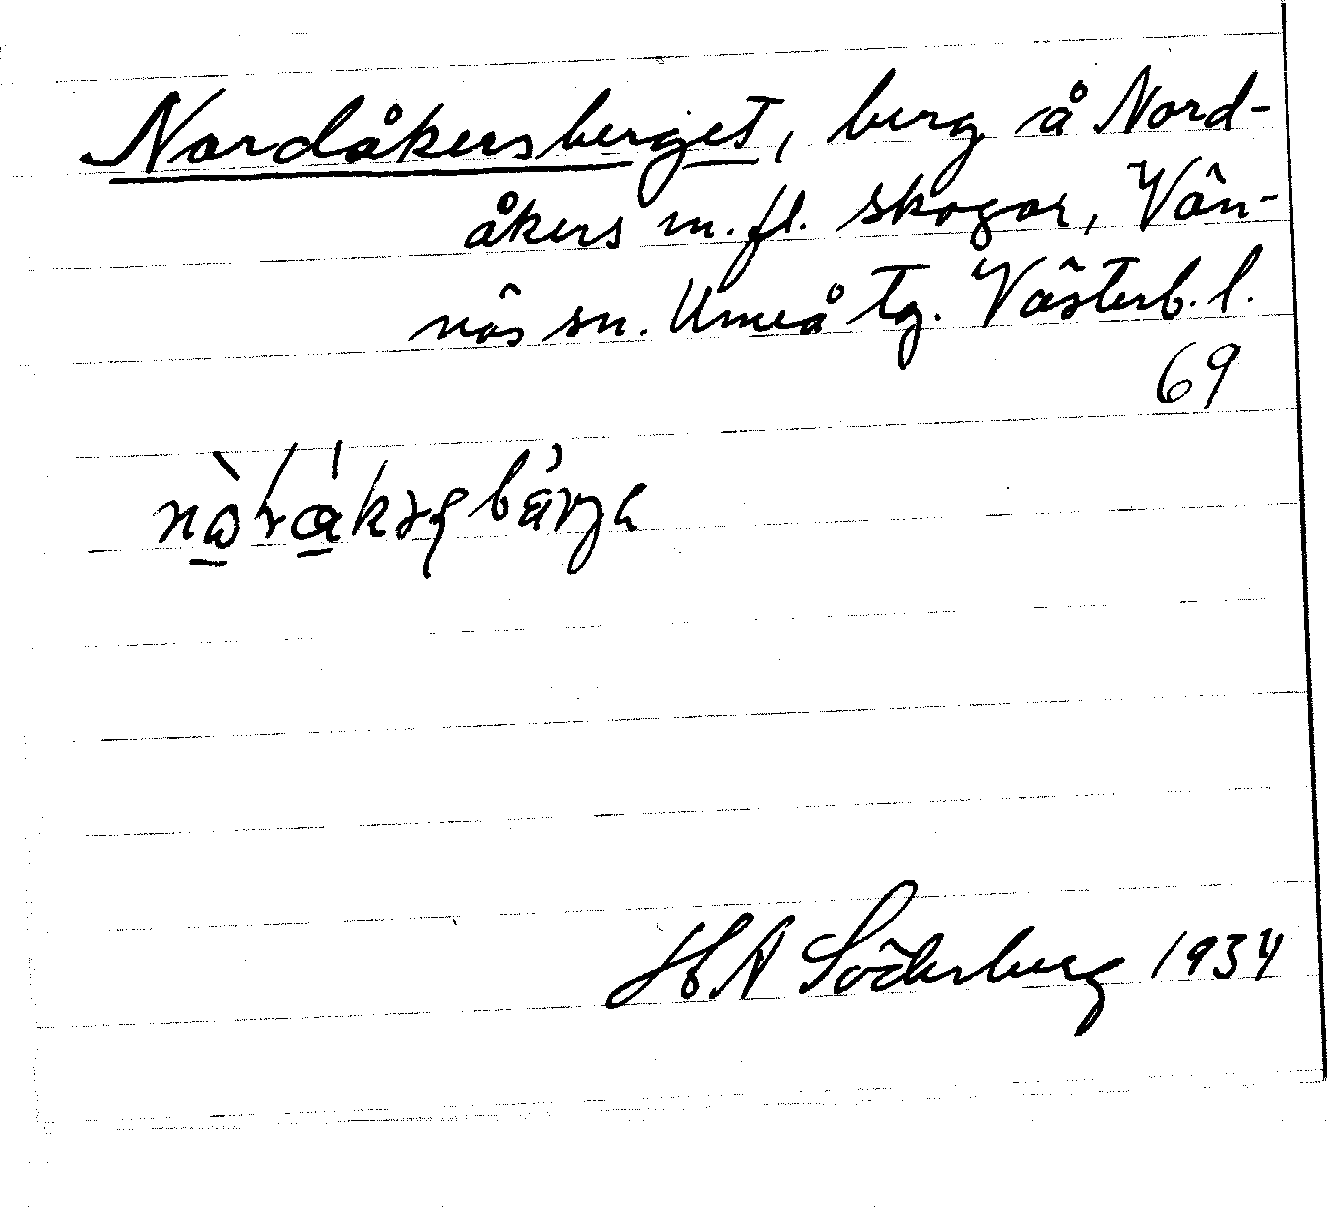 Nordåkersberget, berg å Nord-
åkers m.fl. skogar, Vän-
näs sn. Umeå tg. Västerb. l.
69
HA Söderberg 1934